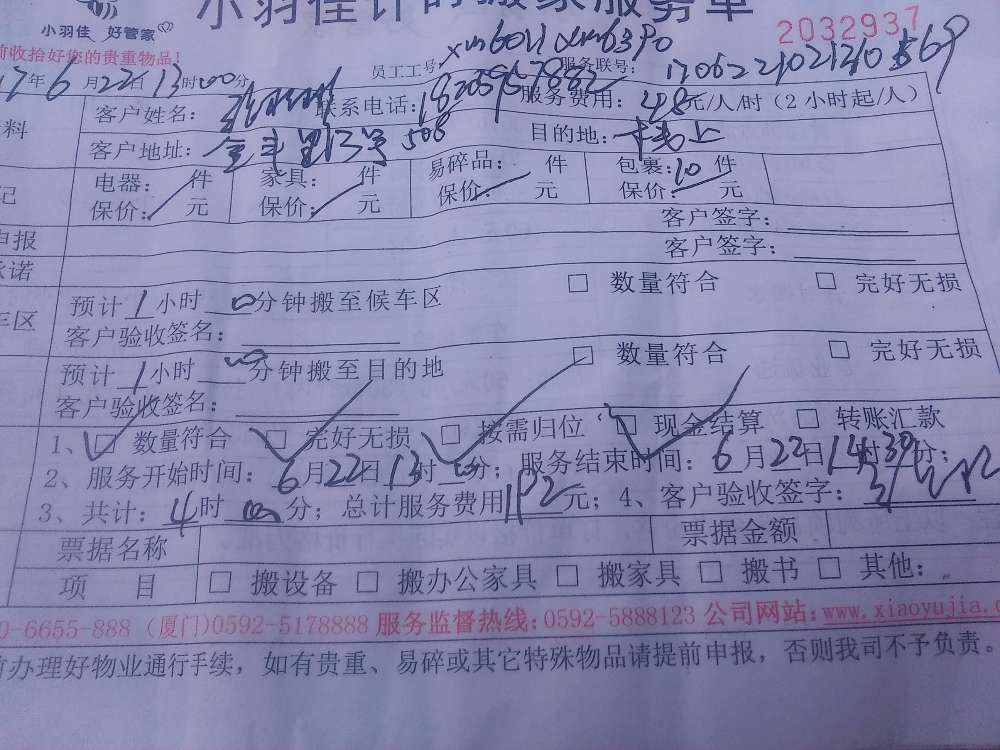 小羽佳计时搬家服务单
小羽佳 好管家
2032937
前收拾好您的贵重物品!
员工工号 xm6011 xm6390 服务联号: 170622102121015569
17年6月22日13时00分
客户姓名: 联系电话: 18205967882 服务费用: 48元/人/时(2小时起/人)
客户地址: 金斗里13号508 目的地: 卡车上
电器: 件 家具: 件 易碎品: 件 包裹:10 件
保价: 元 保价: 元 保价: 元 保价: 元
申报 客户签字:
承诺 客户签字:
预计1小时0分钟搬至候车区 □ 数量符合 □ 完好无损
车区 客户验收签名:
预计1小时00分钟搬至目的地 □ 数量符合 □ 完好无损
客户验收签名:
1、□ 数量符合 □ 完好无损 □ 按需归位 □ 现金结算 □ 转账汇款
2、服务开始时间: 6月22日13时00分; 服务结束时间: 6月22日14时30分;
3、共计: 4时00分; 总计服务费用192元; 4、客户验收签字:
票据名称 票据金额
项 目 □ 搬设备 □ 搬办公家具 □ 搬家具 □ 搬书 □ 其他:
0-6655-888 (厦门)0592-5178888 服务监督热线:0592-5888123 公司网站:www.xiaoyujia.c
前办理好物业通行手续, 如有贵重、易碎或其它特殊物品请提前申报, 否则我司不予负责。